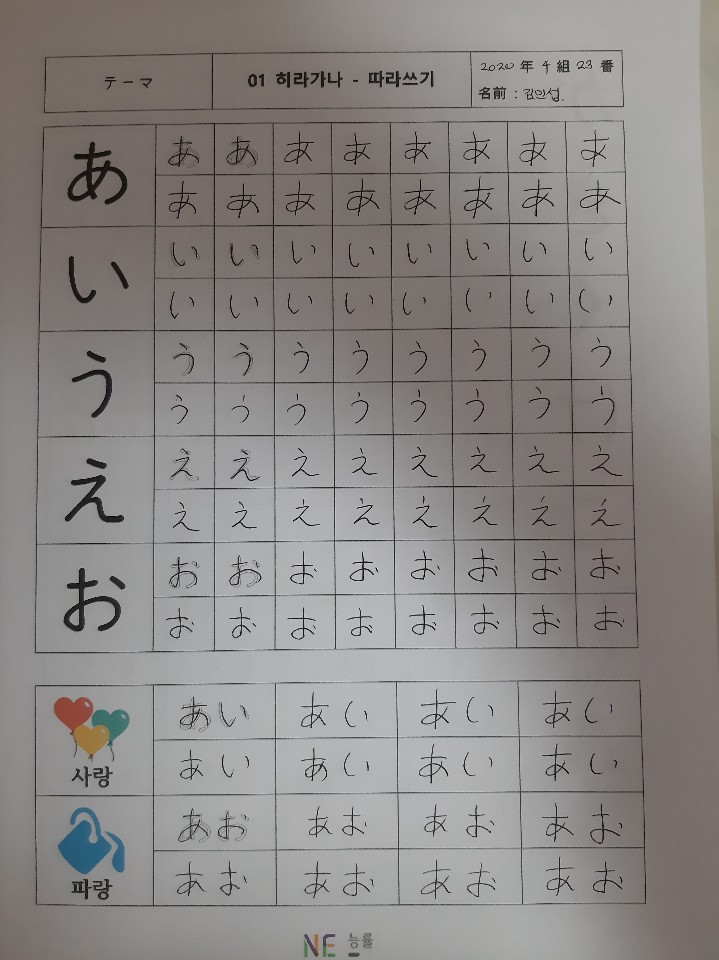 テーマ 01 히라가나 - 따라쓰기 2020 年 4 組 23 番
名前 : 김민섭.
あ あ あ あ あ あ あ あ あ
あ あ あ あ あ あ あ あ
い い い い い い い い い
い い い い い い い い
う う う う う う う う う
う う う う う う う う
え え え え え え え え え
え え え え え え え え
お お お お お お お お お
お お お お お お お お
あい あい あい あい
사랑 あい あい あい あい
あお あお あお あお
파랑 あお あお あお あお
NE 능률